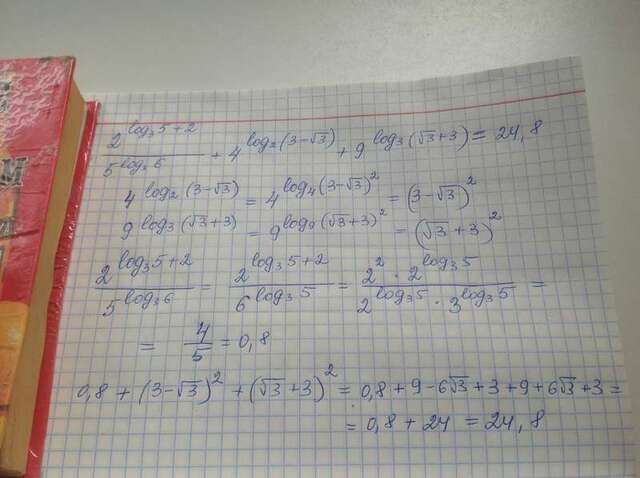 2^(log₃5+2) / 5^(log₃6) + 4^(log₂(3-√3)) + 9^(log₃(√3+3)) = 24,8
4^(log₂(3-√3)) = 4^(log₄(3-√3)²) = (3-√3)²
9^(log₃(√3+3)) = 9^(log₉(√3+3)²) = (√3+3)²
2^(log₃5+2) / 5^(log₃6) = 2^(log₃5+2) / 6^(log₃5) = 2²·2^(log₃5) / 2^(log₃5)·3^(log₃5) =
= 4/5 = 0,8
0,8 + (3-√3)² + (√3+3)² = 0,8+9-6√3+3+9+6√3+3 =
= 0,8 + 24 = 24,8